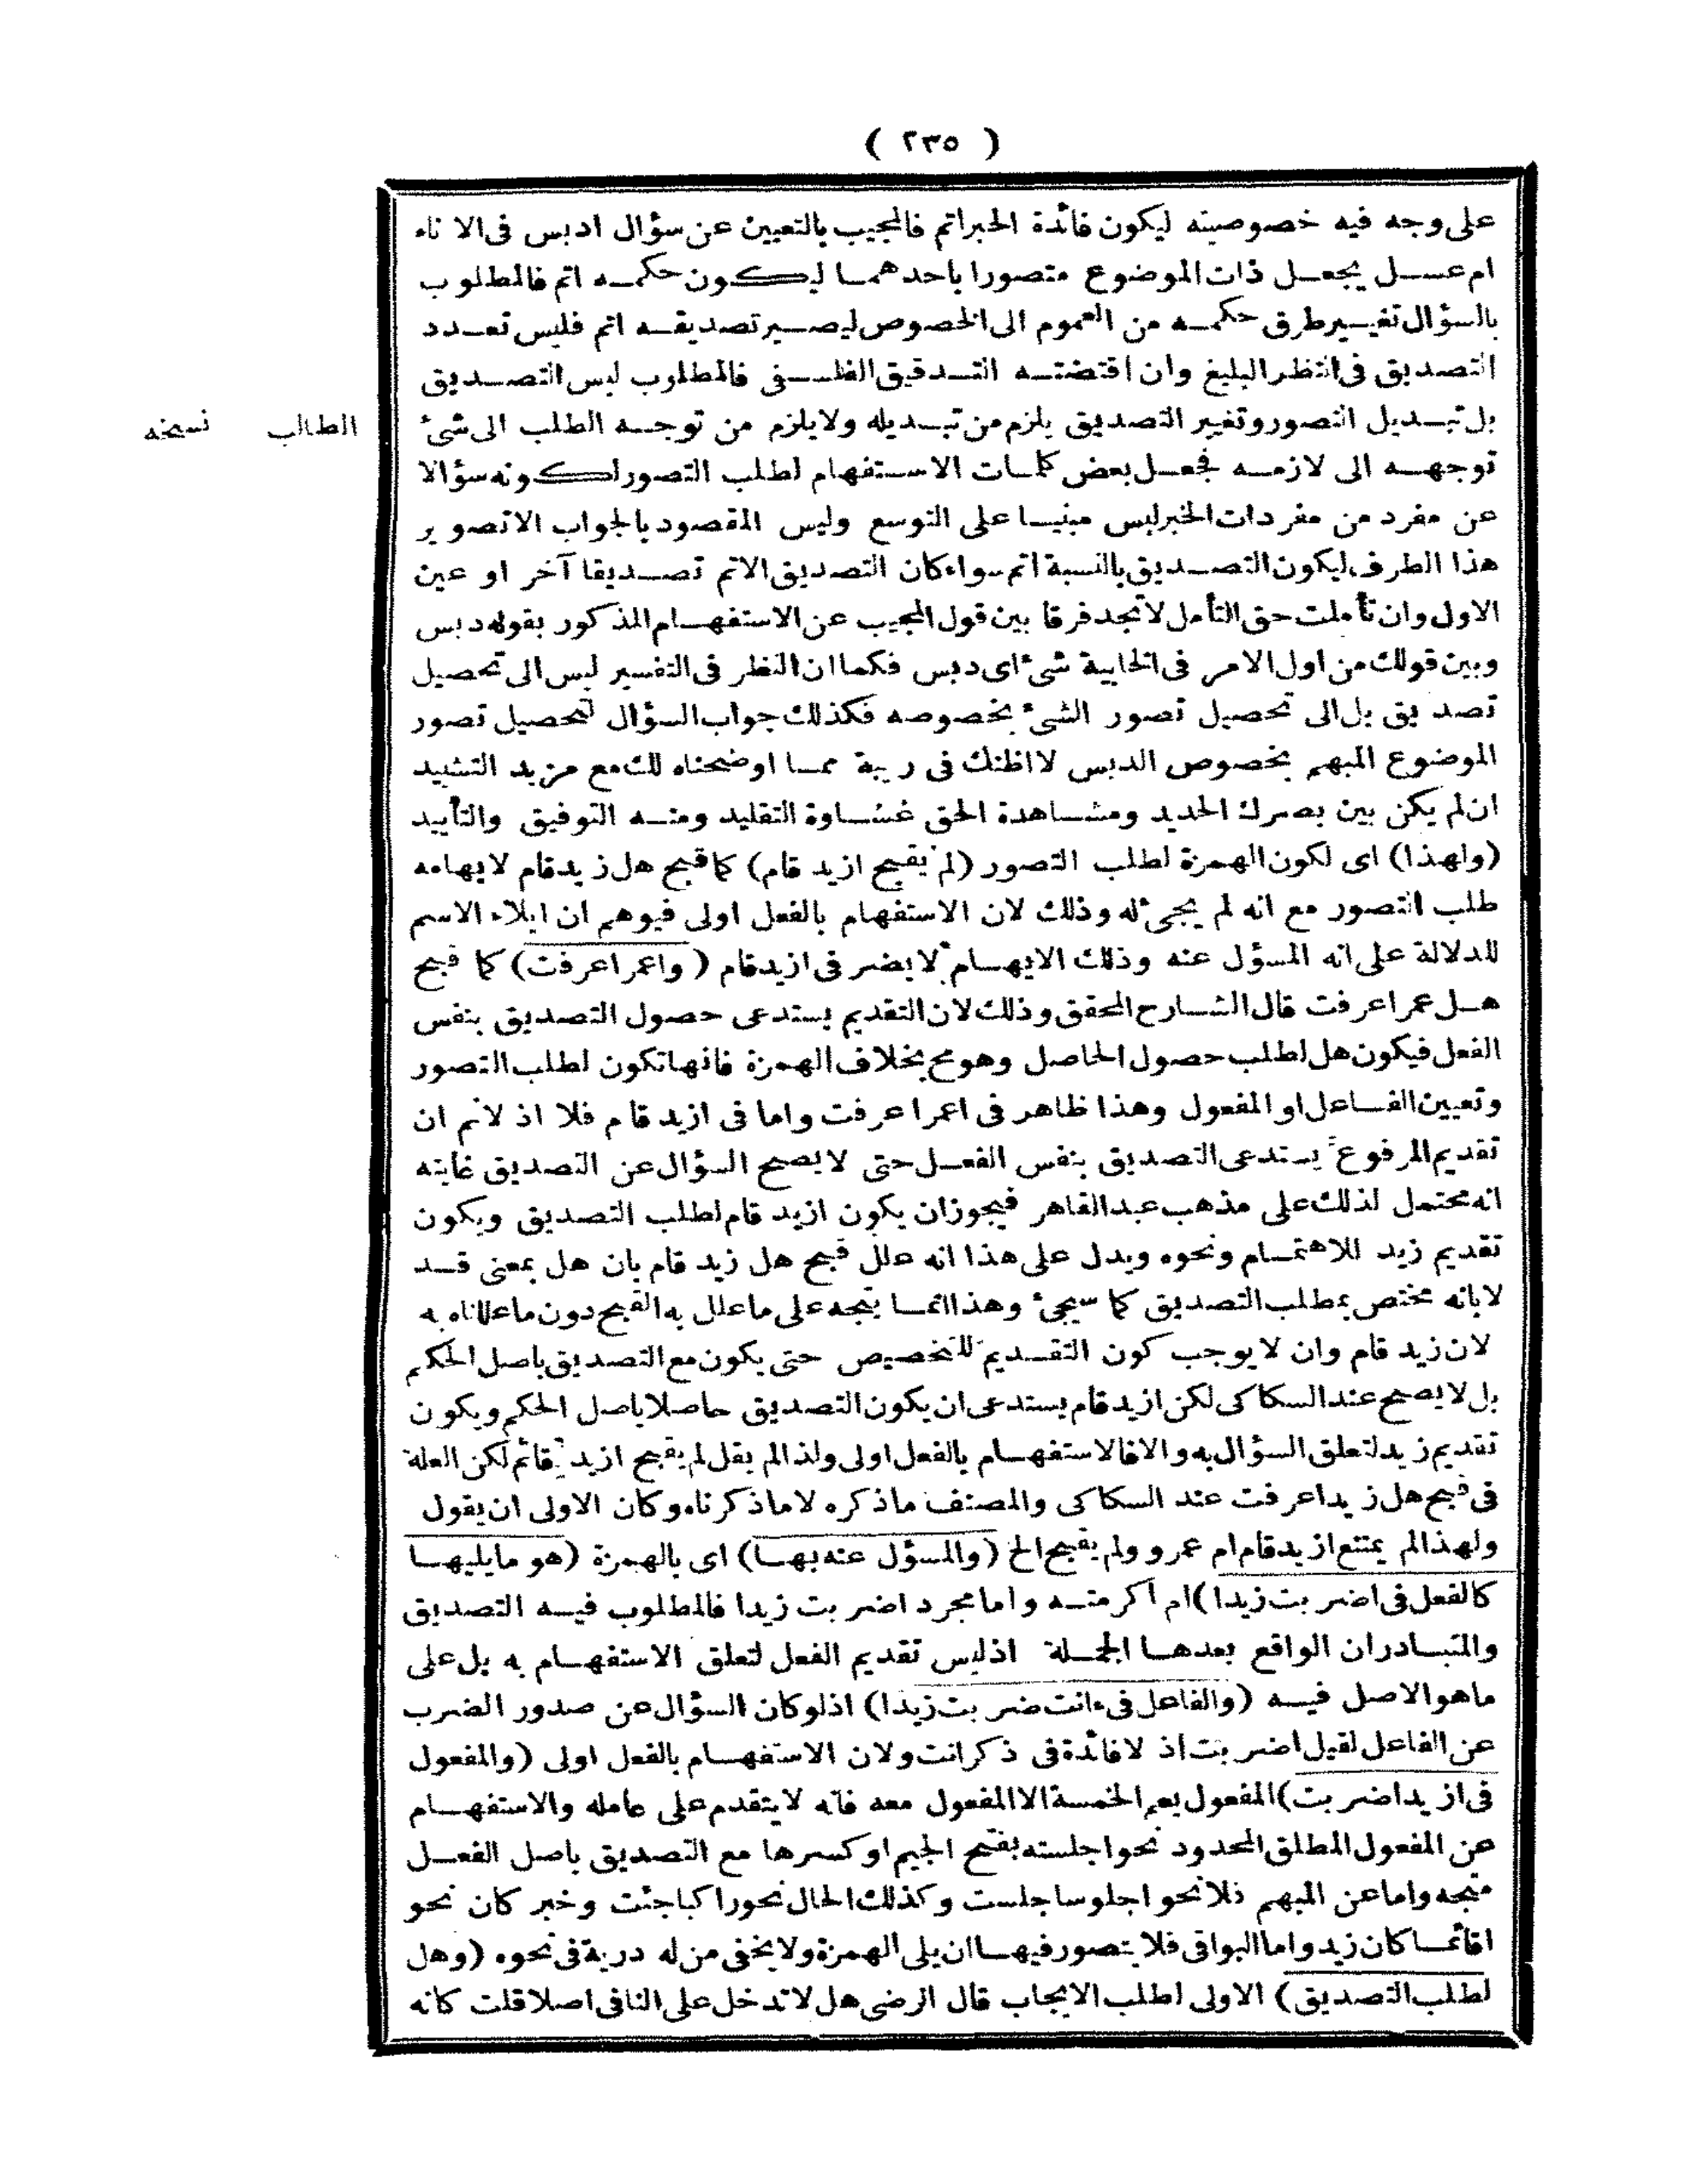 ( ٢٣٥ )
على وجه فيه خصوصيته ليكون فائدة الخبر اتم فالمجيب بالتعيين عن سؤال ادبس فى الاناء
ام عسل يجعل ذات الموضوع متصورا باحدهما ليكون حكمه اتم فالمطلوب
بالسؤال تغيير طرق حكمه من العموم الى الخصوص ليصير تصديقه اتم فليس تعدد
التصديق فى النظر البليغ وان اقتضته التدقيق الفلسفى فالمطلوب ليس التصديق
بل تبديل التصور وتغيير التصديق يلزم من تبديله ولا يلزم من توجه الطلب الى شئ
الطالب نسخه
توجهه الى لازمه فجعل بعض كلمات الاستفهام لطلب التصور لكونه سؤالا
عن مفرد من مفردات الخبر ليس مبنيا على التوسع وليس المقصود بالجواب الا تصوير
هذا الطرف ليكون التصديق بالنسبة اتم سواء كان التصديق الاتم تصديقا آخر او عين
الاول وان تأملت حق التأمل لا تجد فرقا بين قول المجيب عن الاستفهام المذكور بقوله دبس
وبين قولك من اول الامر فى الخابية شئ اى دبس فكما ان النظر فى التفسير ليس الى تحصيل
تصديق بل الى تحصيل تصور الشئ بخصوصه فكذلك جواب السؤال لتحصيل تصور
الموضوع المبهم بخصوص الدبس لا اظنك فى ريبة مما اوضحناه لك مع مزيد التشييد
ان لم يكن بين بصرك الحديد ومشاهدة الحق غشاوة التقليد ومنه التوفيق والتأييد
(ولهذا) اى لكون الهمزة لطلب التصور (لم يقبح ازيد قام) كما قبح هل زيد قام لايهامه
طلب التصور مع انه لم يجئ له وذلك لان الاستفهام بالفعل اولى فيوهم ان ايلاء الاسم
للدلالة على انه المسؤل عنه وذلك الايهام لا يضر فى ازيد قام (واعمرا عرفت) كما قبح
هل عمرا عرفت قال الشارح المحقق وذلك لان التقديم يستدعى حصول التصديق بنفس
الفعل فيكون هل لطلب حصول الحاصل وهو مح بخلاف الهمزة فانها تكون لطلب التصور
وتعيين الفاعل او المفعول وهذا ظاهر فى اعمرا عرفت واما فى ازيد قام فلا اذ لانم ان
تقديم المرفوع يستدعى التصديق بنفس الفعل حتى لا يصح السؤال عن التصديق غايته
انه محتمل لذلك على مذهب عبد القاهر فيجوز ان يكون ازيد قام لطلب التصديق ويكون
تقديم زيد للاهتمام ونحوه ويدل على هذا انه علل قبح هل زيد قام بان هل بمعنى قد
لا بانه مختص بمطلب التصديق كما سيجئ وهذا انما يتجه على ما علل به القبح دون ما عللناه به
لان زيد قام وان لا يوجب كون التقديم للتخصيص حتى يكون مع التصديق باصل الحكم
بل لا يصح عند السكاكى لكن ازيد قام يستدعى ان يكون التصديق حاصلا باصل الحكم ويكون
تقديم زيد لتعلق السؤال به والا فالاستفهام بالفعل اولى ولذا لم يقل لم يقبح ازيد قائم لكن العلة
فى قبح هل زيدا عرفت عند السكاكى والمصنف ما ذكره لا ما ذكرناه وكان الاولى ان يقول
ولهذا لم يمتنع ازيد قام ام عمرو ولم يقبح الخ (والمسؤل عنه بها) اى بالهمزة (هو ما يليها
كالفعل فى اضربت زيدا) ام اكرمته واما مجرد اضربت زيدا فالمطلوب فيه التصديق
والمتبادر ان الواقع بعدها الجملة اذ ليس تقديم الفعل لتعلق الاستفهام به بل على
ما هو الاصل فيه (والفاعل فى ءانت ضربت زيدا) اذ لو كان السؤال عن صدور الضرب
عن الفاعل لقيل اضربت اذ لا فائدة فى ذكر انت ولان الاستفهام بالفعل اولى (والمفعول
فى ازيدا ضربت) المفعول يعم الخمسة الا المفعول معه فانه لا يتقدم على عامله والاستفهام
عن المفعول المطلق المحدود نحو اجلسته بفتح الجيم او كسرها مع التصديق باصل الفعل
متجه واما عن المبهم فلا نحو اجلوسا جلست وكذلك الحال نحو راكبا جئت وخبر كان نحو
اقائما كان زيد واما البواقى فلا يتصور فيها ان يلى الهمزة ولا يخفى من له دربة فى نحوه (وهل
لطلب التصديق) الاولى لطلب الايجاب قال الرضى هل لا تدخل على النافى اصلا قلت كانه